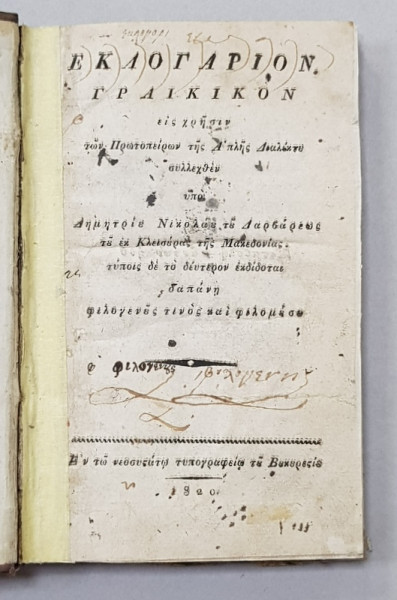 ΕΚΛΟΓΑΡΙΟΝ
ΓΡΑΙΚΙΚΟΝ
εἰς χρῆσιν
τῶν Πρωτοπείρων τῆς Ἁπλῆς Διαλέκτȣ
συλλεχθὲν
ὑπὸ
Δημητρίȣ Νικολάȣ τȣ͂ Δαρβάρεως
τȣ͂ ἐκ Κλεισȣ́ρας τῆς Μακεδονίας.
τύποις δὲ τὸ δεύτερον ἐκδίδοται
δαπάνῃ
φιλογενȣ͂ς τινὸς καὶ φιλομȣ́σȣ
ὁ φιλογενης
Ἐν τῷ νεοσυστάτῳ τυπογραφείῳ τȣ͂ Βȣκȣρεςίȣ
1820